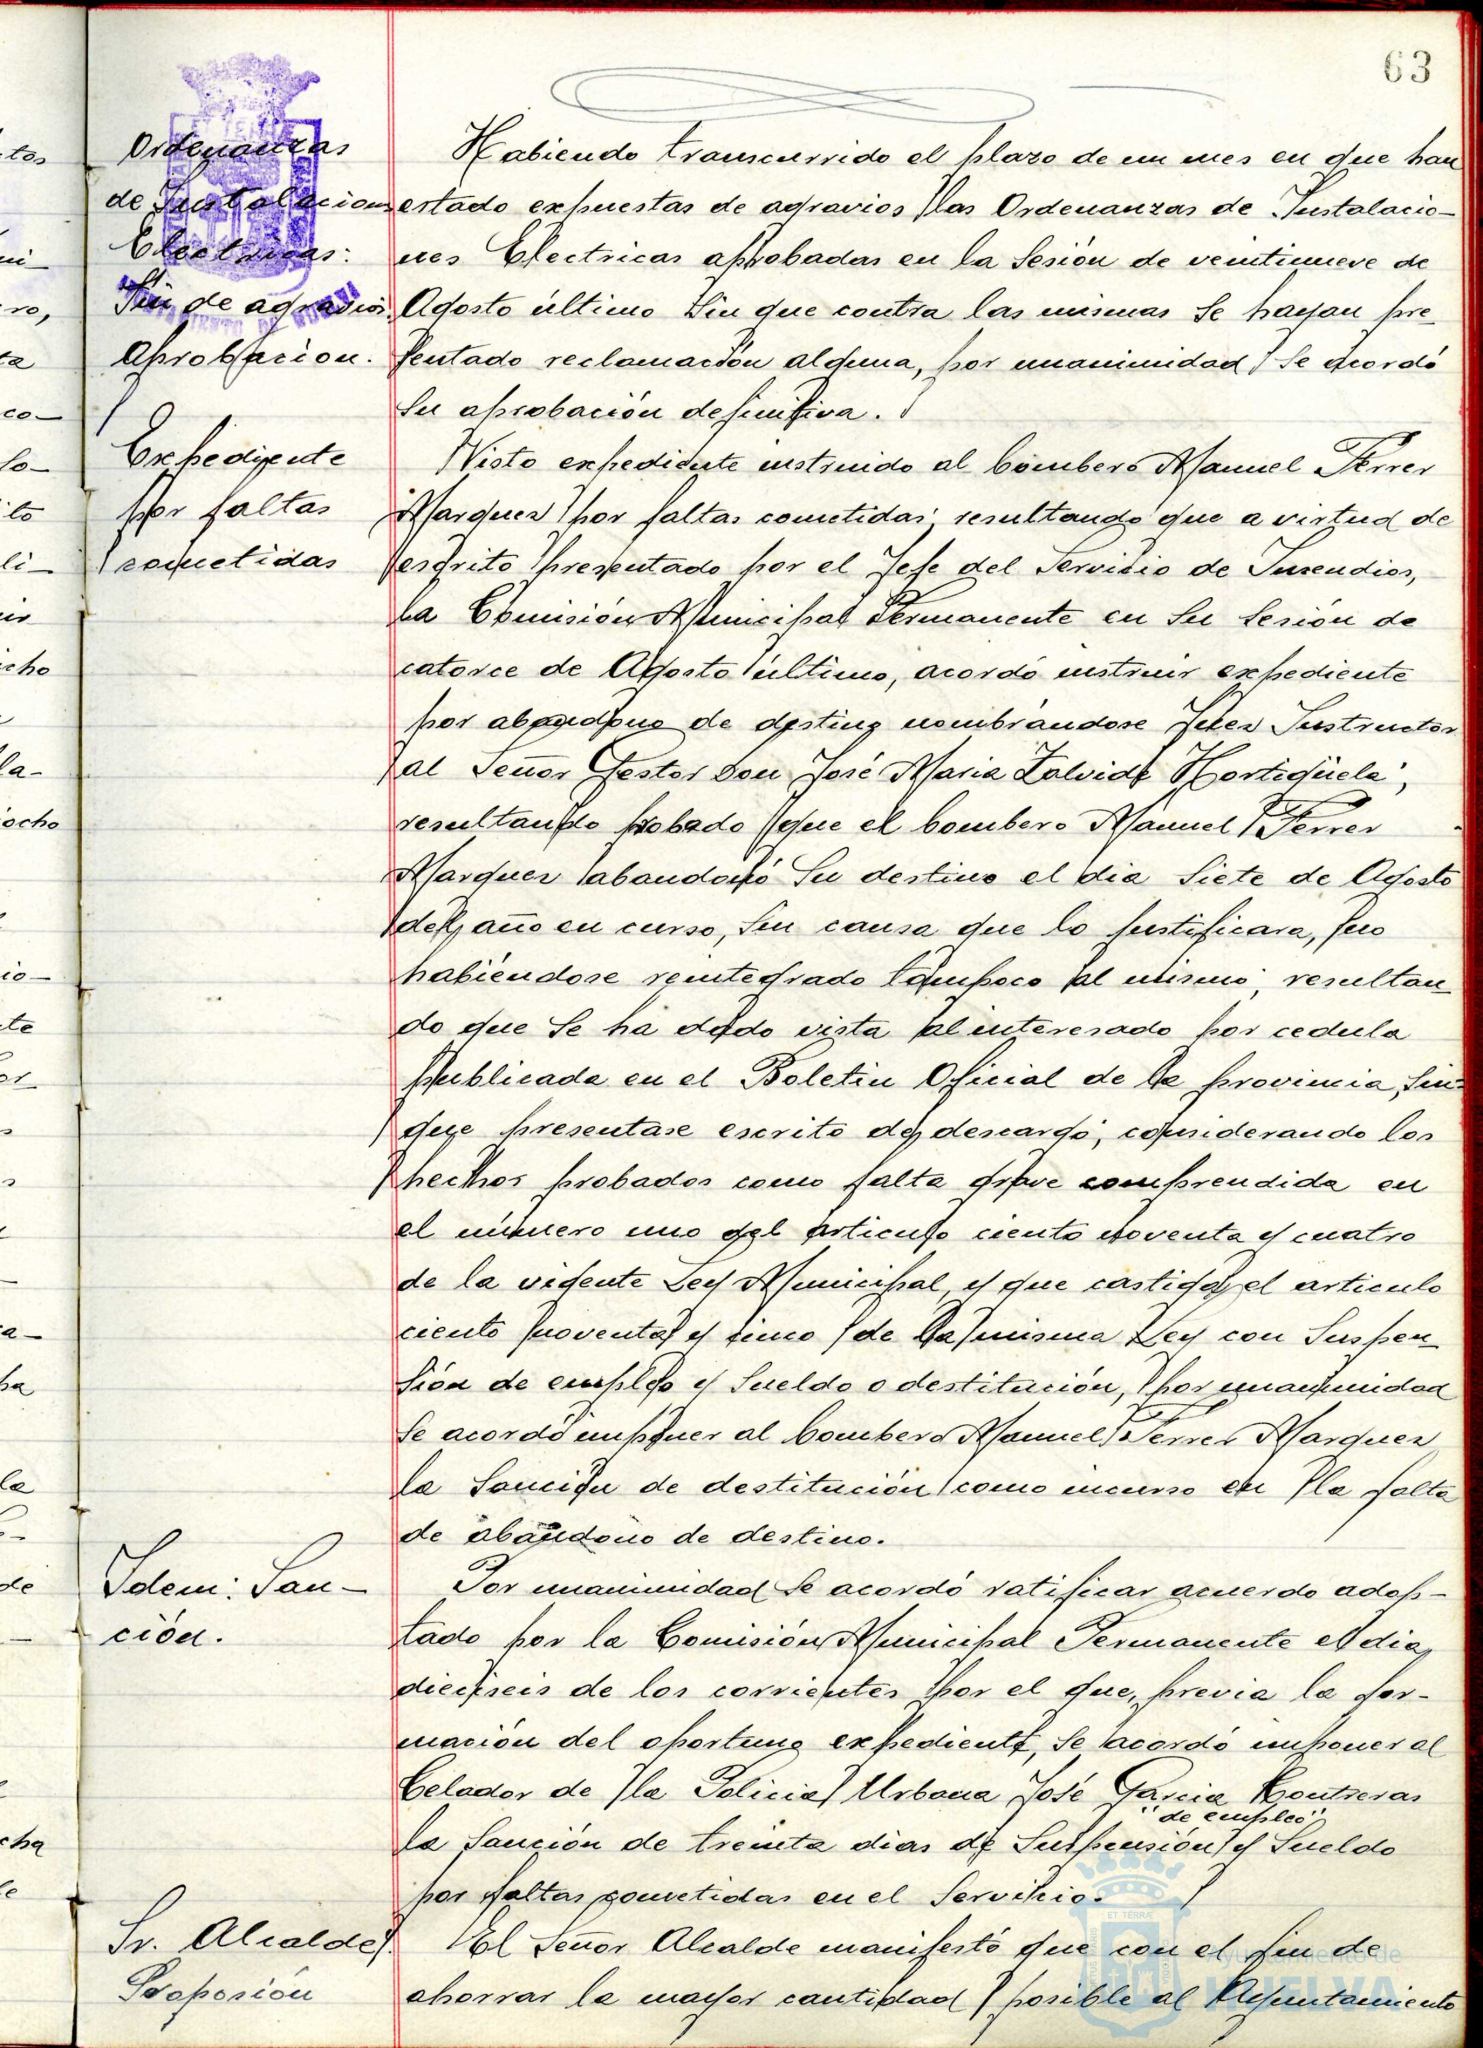 63
Ordenanzas
de Instalaciones
Electricas:
Fin de agravios.
Aprobacion.
Habiendo transcurrido el plazo de un mes en que han
estado expuestas de agravios las Ordenanzas de Instalacio-
nes Electricas aprobadas en la Sesión de veintinueve de
Agosto último Sin que contra las mismas Se hayan pre-
sentado reclamación alguna, por unanimidad Se acordó
Su aprobación definitiva.
Expediente
por faltas
cometidas
Visto expediente instruido al bombero Manuel Ferrer
Marquez por faltas cometidas; resultando que a virtud de
escrito presentado por el Jefe del Servicio de Incendios,
la Comisión Municipal Permanente en Su Sesión de
catorce de Agosto último, acordó instruir expediente
por abandono de destino nombrándose Juez Instructor
al Señor Gestor Don José Maria Zalvide Hortigüela;
resultando probado que el bombero Manuel Ferrer
Marquez abandonó Su destino el dia Siete de Agosto
del año en curso, Sin causa que lo justificara, no
habiéndose reintegrado tampoco al mismo; resultan-
do que Se ha dado vista al interesado por cedula
publicada en el Boletin Oficial de la provincia, Sin
que presentase escrito de descargo; considerando los
hechos probados como falta grave comprendida en
el número uno del articulo ciento noventa y cuatro
de la vigente Ley Municipal, y que castiga el articulo
ciento noventa y cinco de la misma Ley con Suspen-
Sión de empleo y Sueldo o destitución, por unanimidad
Se acordó imponer al bombero Manuel Ferrer Marquez
la Sanción de destitución como incurso en la falta
de abandono de destino.
Idem: San-
ción.
Por unanimidad Se acordó ratificar acuerdo adop-
tado por la Comisión Municipal Permanente el dia
dieciseis de los corrientes por el que, previa la for-
mación del oportuno expediente, Se acordó imponer al
Celador de la Policia Urbana José Garcia Contreras
"de empleo"
la Sanción de treinta dias de Suspensión y Sueldo
por faltas cometidas en el Servicio.
Sr. Alcalde.
Proposión
El Señor Alcalde manifestó que con el fin de
ahorrar la mayor cantidad posible al Ayuntamiento
Ayuntamiento de
HUELVA